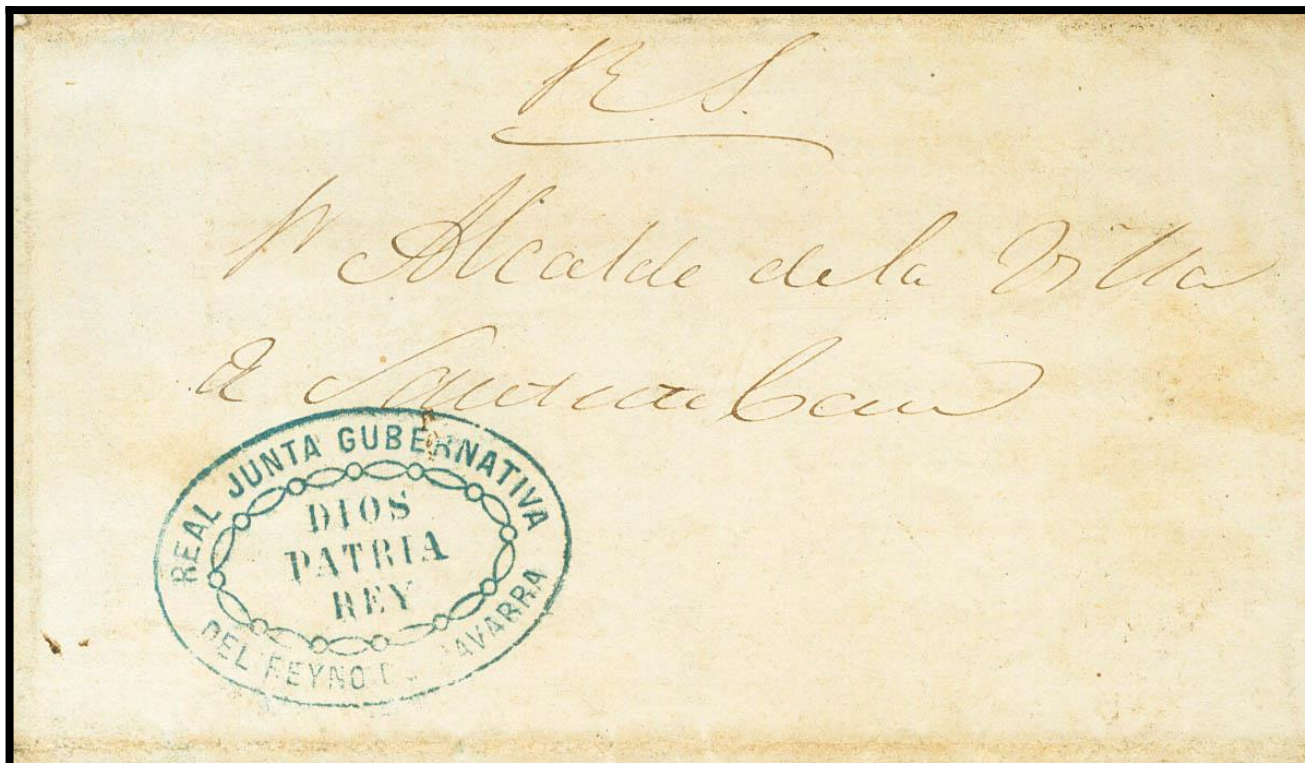 R. S.
Sr Alcalde de la Villa
REAL JUNTA GUBERNATIVA
DIOS
PATRIA
REY
DEL REYNO DE NAVARRA